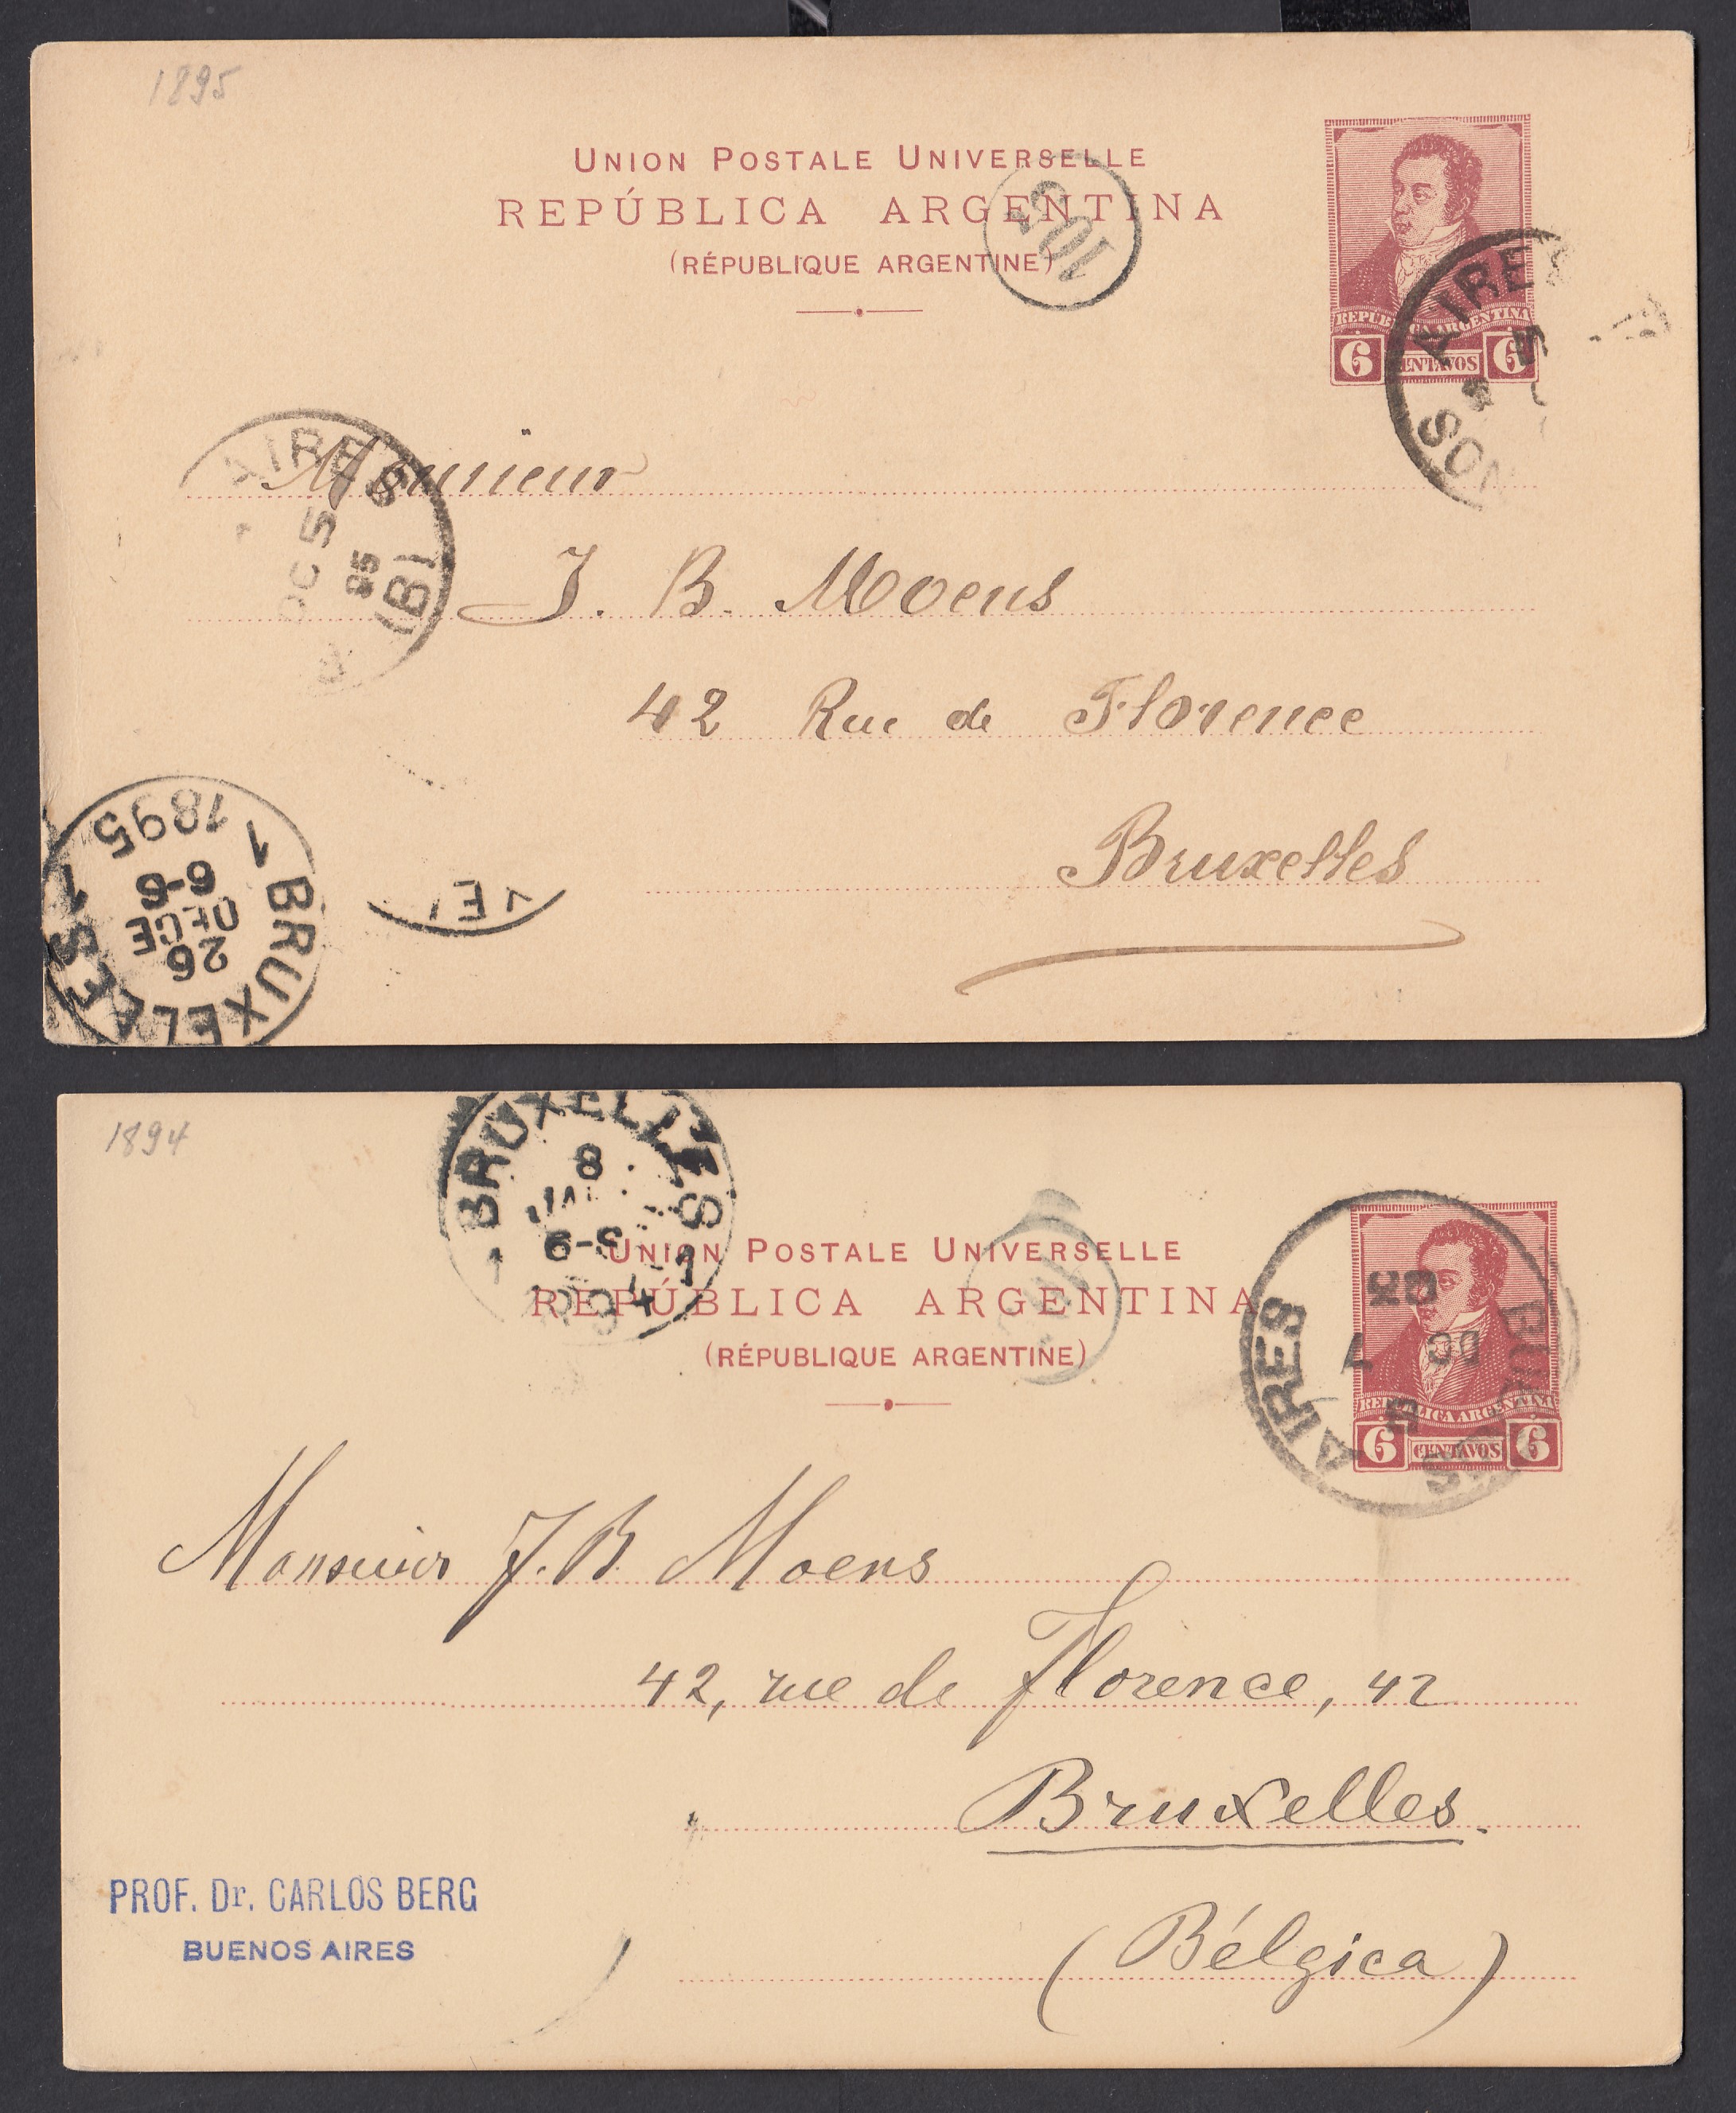 1895
UNION POSTALE UNIVERSELLE
REPÚBLICA ARGENTINA
(RÉPUBLIQUE ARGENTINE)
REPUBLICA ARGENTINA
6 CENTAVOS 6
AIRES
5
NOS
AIRES
DC 5
95
(B)
Monsieur
J. B. Moens
42 Rue de Florence
Bruxelles
1 BRUXELLES 1
26
DECE
6-6
1895
1894
BRUXELLES
8
JAN
6-9
1894
1 1
UNION POSTALE UNIVERSELLE
REPÚBLICA ARGENTINA
(RÉPUBLIQUE ARGENTINE)
REPUBLICA ARGENTINA
6 CENTAVOS 6
BUENOS AIRES
DC 7
93
Monsieur J. B. Moens
42, rue de Florence, 42
Bruxelles.
(Bélgica)
PROF. Dr. CARLOS BERG
BUENOS AIRES